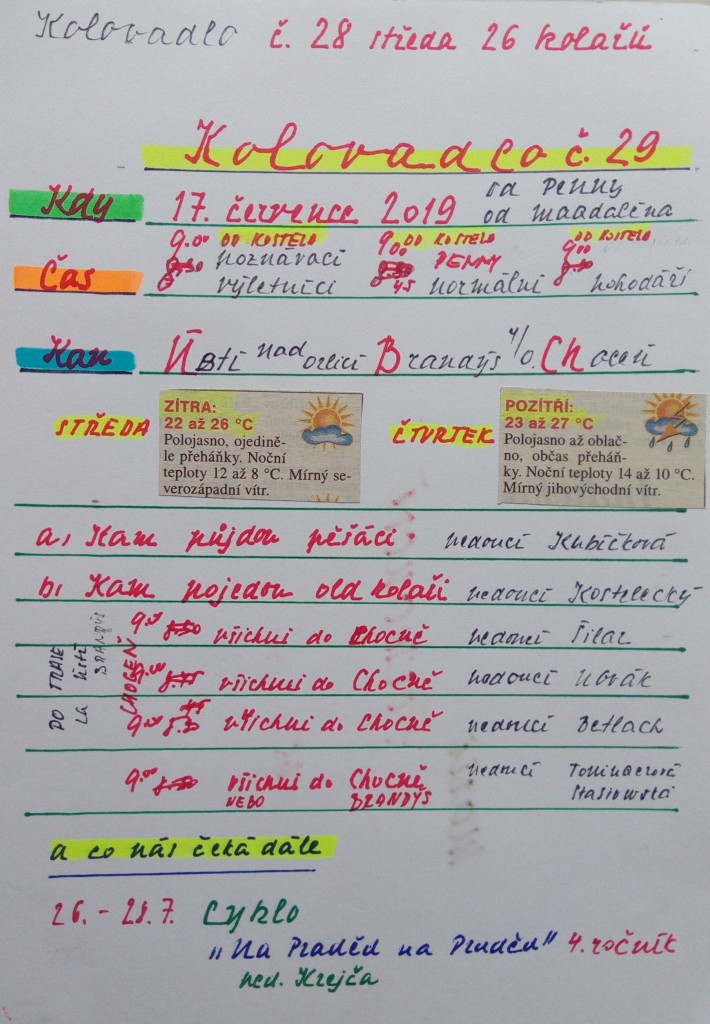 Kolovadlo č. 28 středa 26 kolařů
Kolovadlo č. 29
Kdy 17. července 2019 od PENNY
od magdaléna
9.00 OD KOSTELA 9.00 OD KOSTELA 9.00 OD KOSTELA
Čas 8.30 poznávací PENNY 8.30
výletníci 8.45 normální pohodáři
Kam Ústí nad orlicí Brandýs n/o. Choceň
STŘEDA
ZÍTRA:
22 až 26 °C
Polojasno, ojedině-
le přeháňky. Noční
teploty 12 až 8 °C. Mírný se-
verozápadní vítr.
ČTVRTEK
POZÍTŘÍ:
23 až 27 °C
Polojasno až oblač-
no, občas přeháň-
ky. Noční teploty 14 až 10 °C.
Mírný jihovýchodní vítr.
a, Kam půjdou pěšáci. vedoucí Kubíčková
b, Kam pojedou old kolaři vedoucí Kostelecký
PO TRASE
Ústí
BRANDÝS
CHOCEŇ
9.00 8.30 všichni do Chocně vedoucí Šilar
9.00 8.45 všichni do Chocně vedoucí Novák
9.00 8.30 všichni do Chocně vedoucí Betlach
9.00 8.30 všichni do Chocně vedoucí
NEBO BRANDÝS
a co nás čeká dále
26. - 28.7. Cyklo
„Na Praděd na Praděd" 4. ročník
ved. Krejča